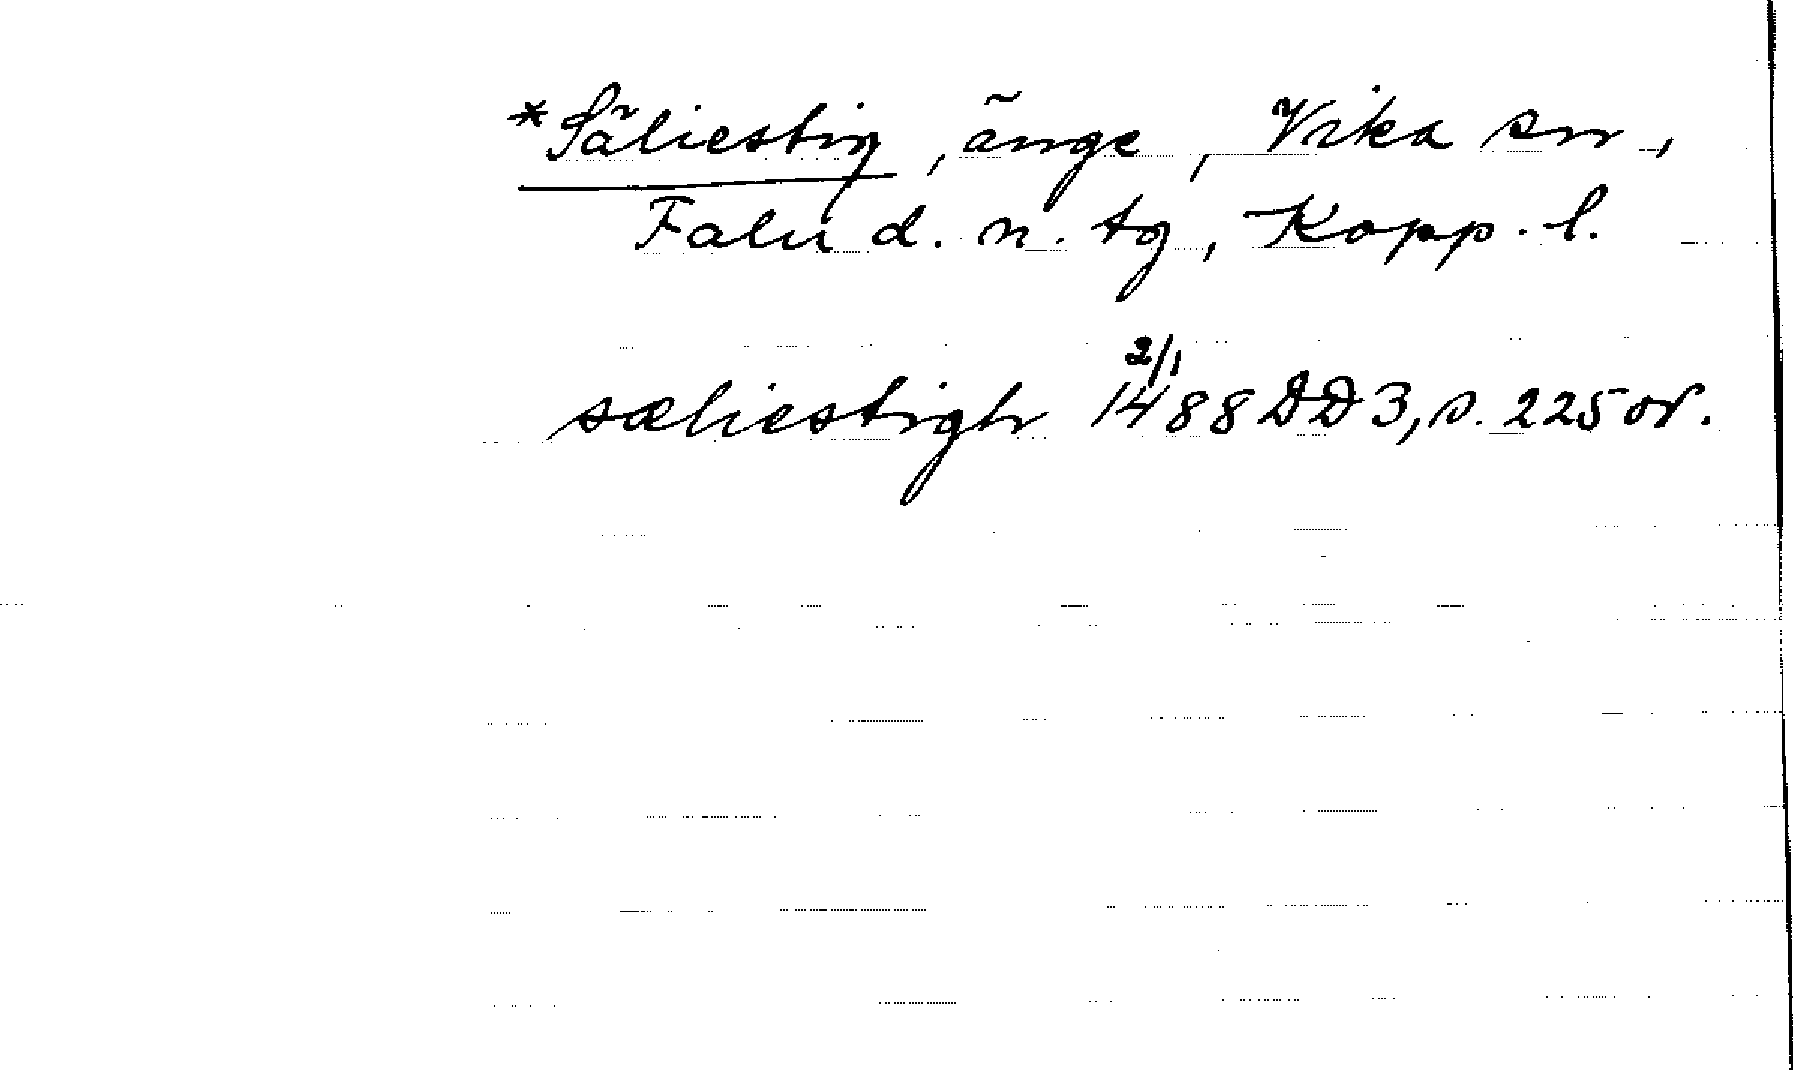 *Säliestig, änge, Vika sn,
Falu d. n. tg, Kopp. l.
sæliestigh 2/1 1488 DD 3, s. 225 or.